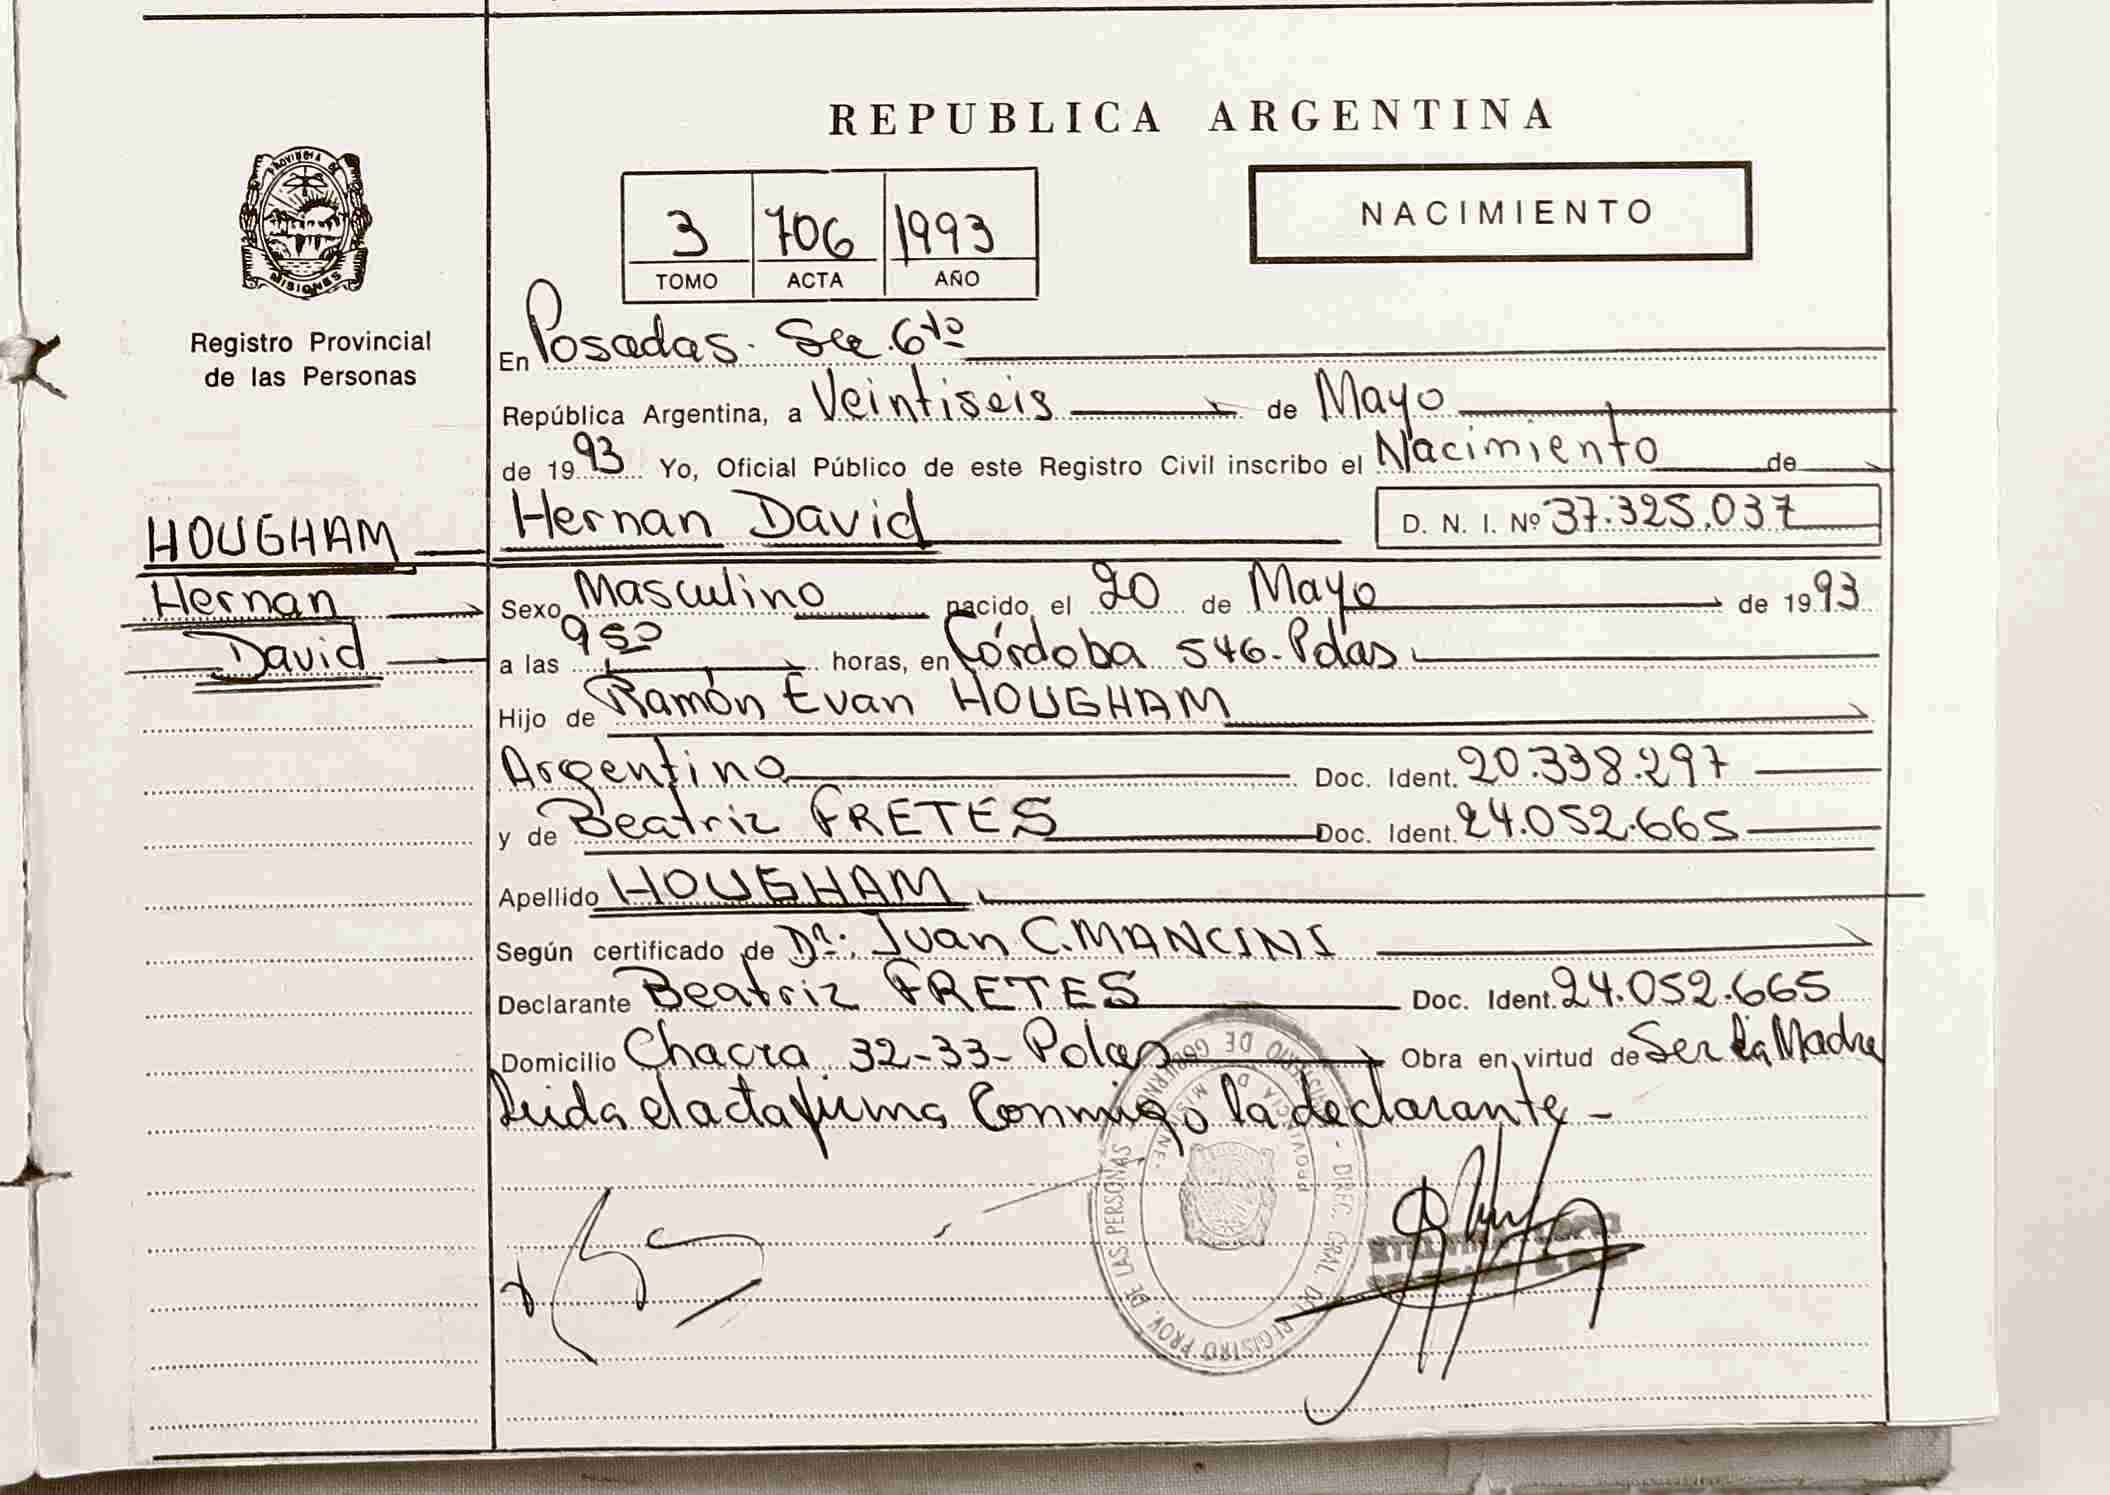 REPUBLICA ARGENTINA
PROVINCIA DE
MISIONES
Registro Provincial
de las Personas
3 706 1993
TOMO ACTA AÑO
NACIMIENTO
En Posadas. Sec. 6ta
República Argentina, a Veintiseis de Mayo
de 1993 Yo, Oficial Público de este Registro Civil inscribo el Nacimiento de
HOUGHAM
Hernan
David
Hernan David D. N. I. Nº 37.325.037
Sexo Masculino nacido el 20 de Mayo de 1993
a las 9 50 horas, en Córdoba 546-Pdas.
Hijo de Ramón Evan HOUGHAM
Argentino Doc. Ident. 20.338.297
y de Beatriz FRETES Doc. Ident. 24.052.665
Apellido HOUGHAM
Según certificado de Dr. Juan C. MANCINI
Declarante Beatriz FRETES Doc. Ident. 24.052.665
Domicilio Chacra 32-33-Pdas Obra en virtud de Ser la Madre
Leida el acta firma Conmigo la declarante-
MINISTERIO DE GOBIERNO - DIREC. GRAL. DEL REGISTRO PROV. DE LAS PERSONAS
PROVINCIA D MISIONE-